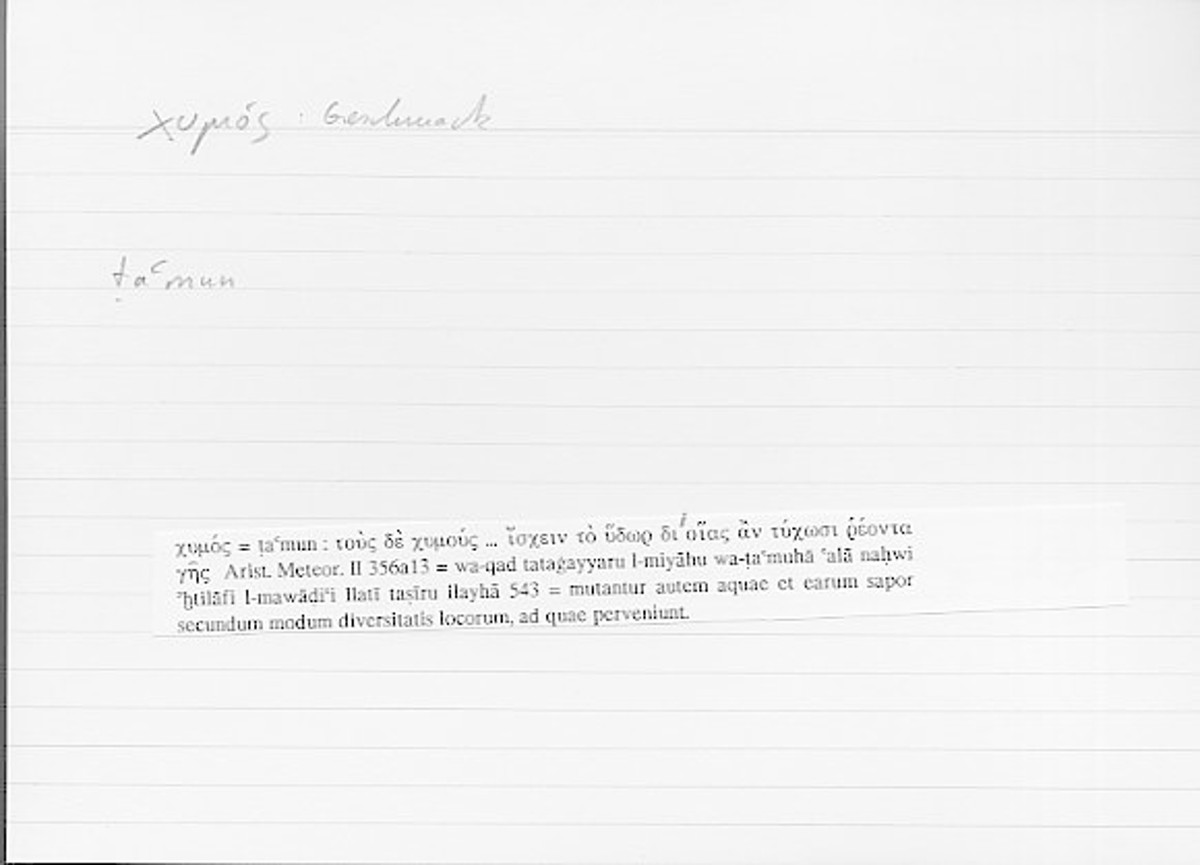 χυμός : Geschmack
ṭaʿmun
χυμός = ṭaʿmun : τοὺς δὲ χυμούς ... ἴσχειν τὸ ὕδωρ δι' οἵας ἂν τύχωσι ῥέοντα
γῆς Arist. Meteor. II 356a13 = wa-qad tataġayyaru l-miyāhu wa-ṭaʿmuhā ʿalā naḥwi
ʾḫtilāfi l-mawāḍiʿi llatī taṣīru ilayhā 543 = mutantur autem aquae et earum sapor
secundum modum diversitatis locorum, ad quae perveniunt.